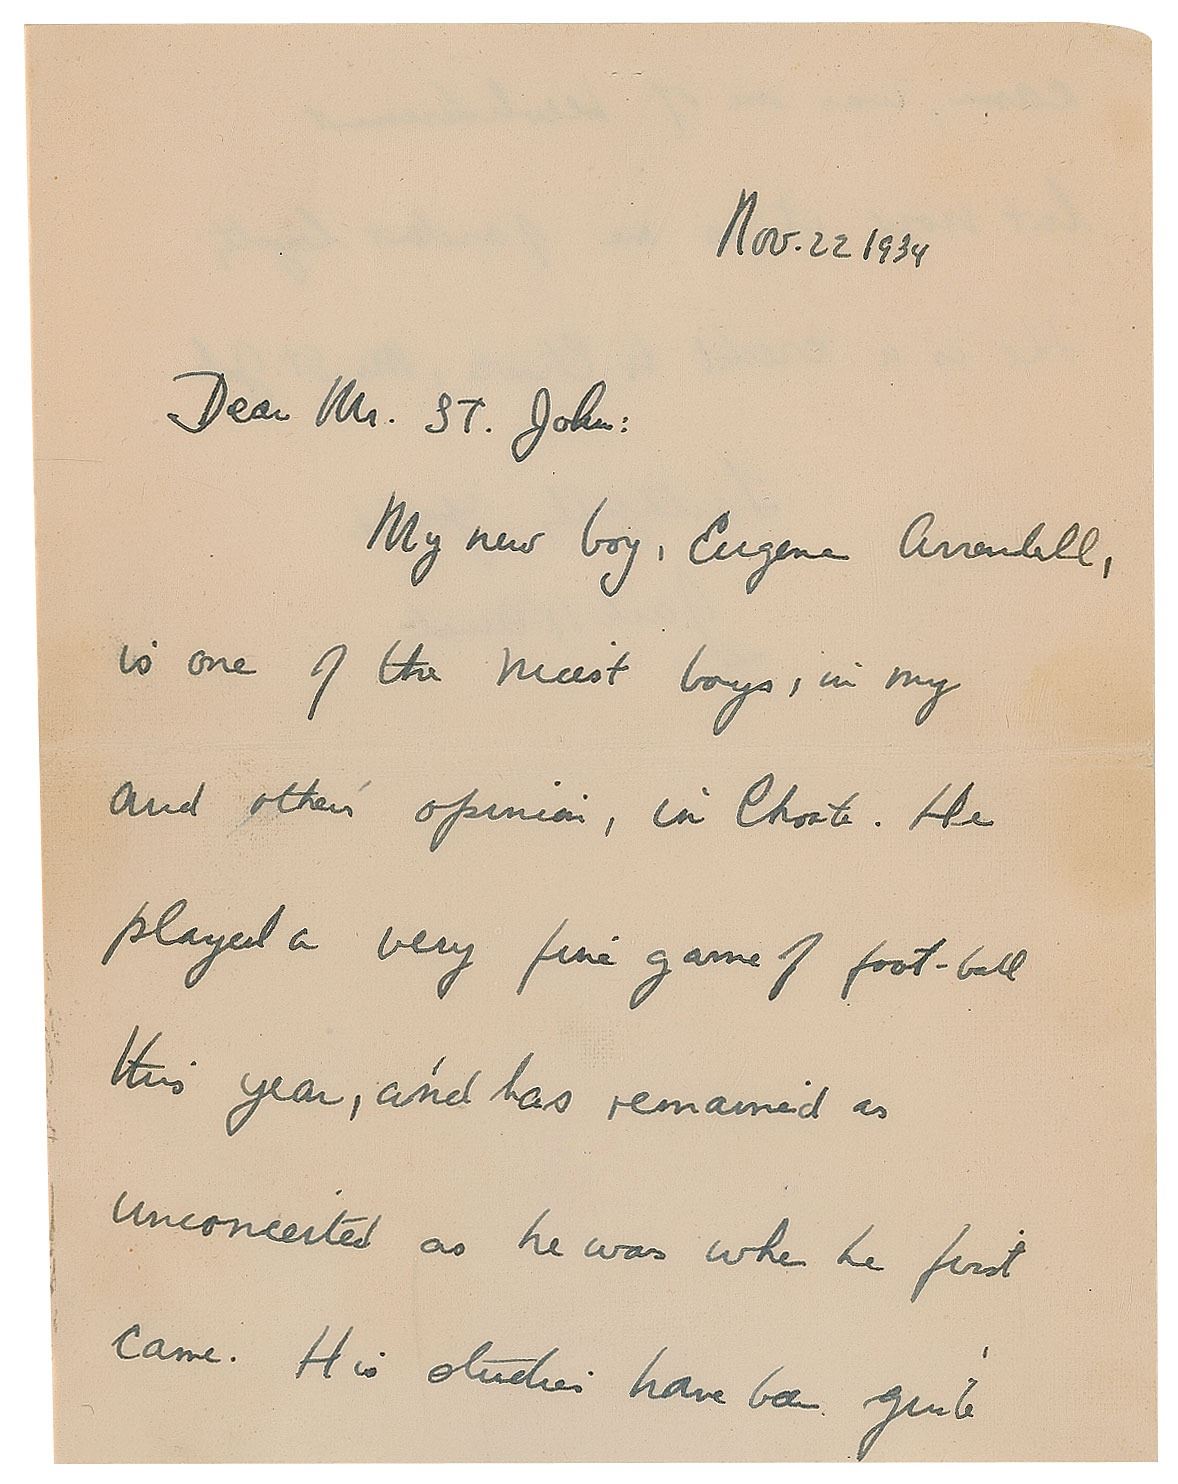 Nov. 22 1934
Dear Mr. St. John:
My new boy, Eugene Arrendell,
is one of the nicest boys, in my
and others' opinion, in Choate. He
played a very fine game of foot-ball
this year, and has remained as
unconceited as he was when he first
came. His studies have been quite